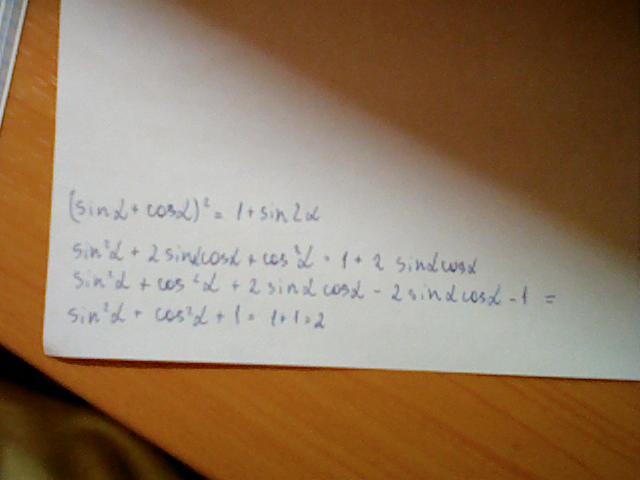 (sinα + cosα)² = 1 + sin2α
sin²α + 2 sinαcosα + cos²α = 1 + 2 sinαcosα
sin²α + cos²α + 2 sinα cosα - 2 sinα cosα - 1 =
sin²α + cos²α + 1 = 1+1=2